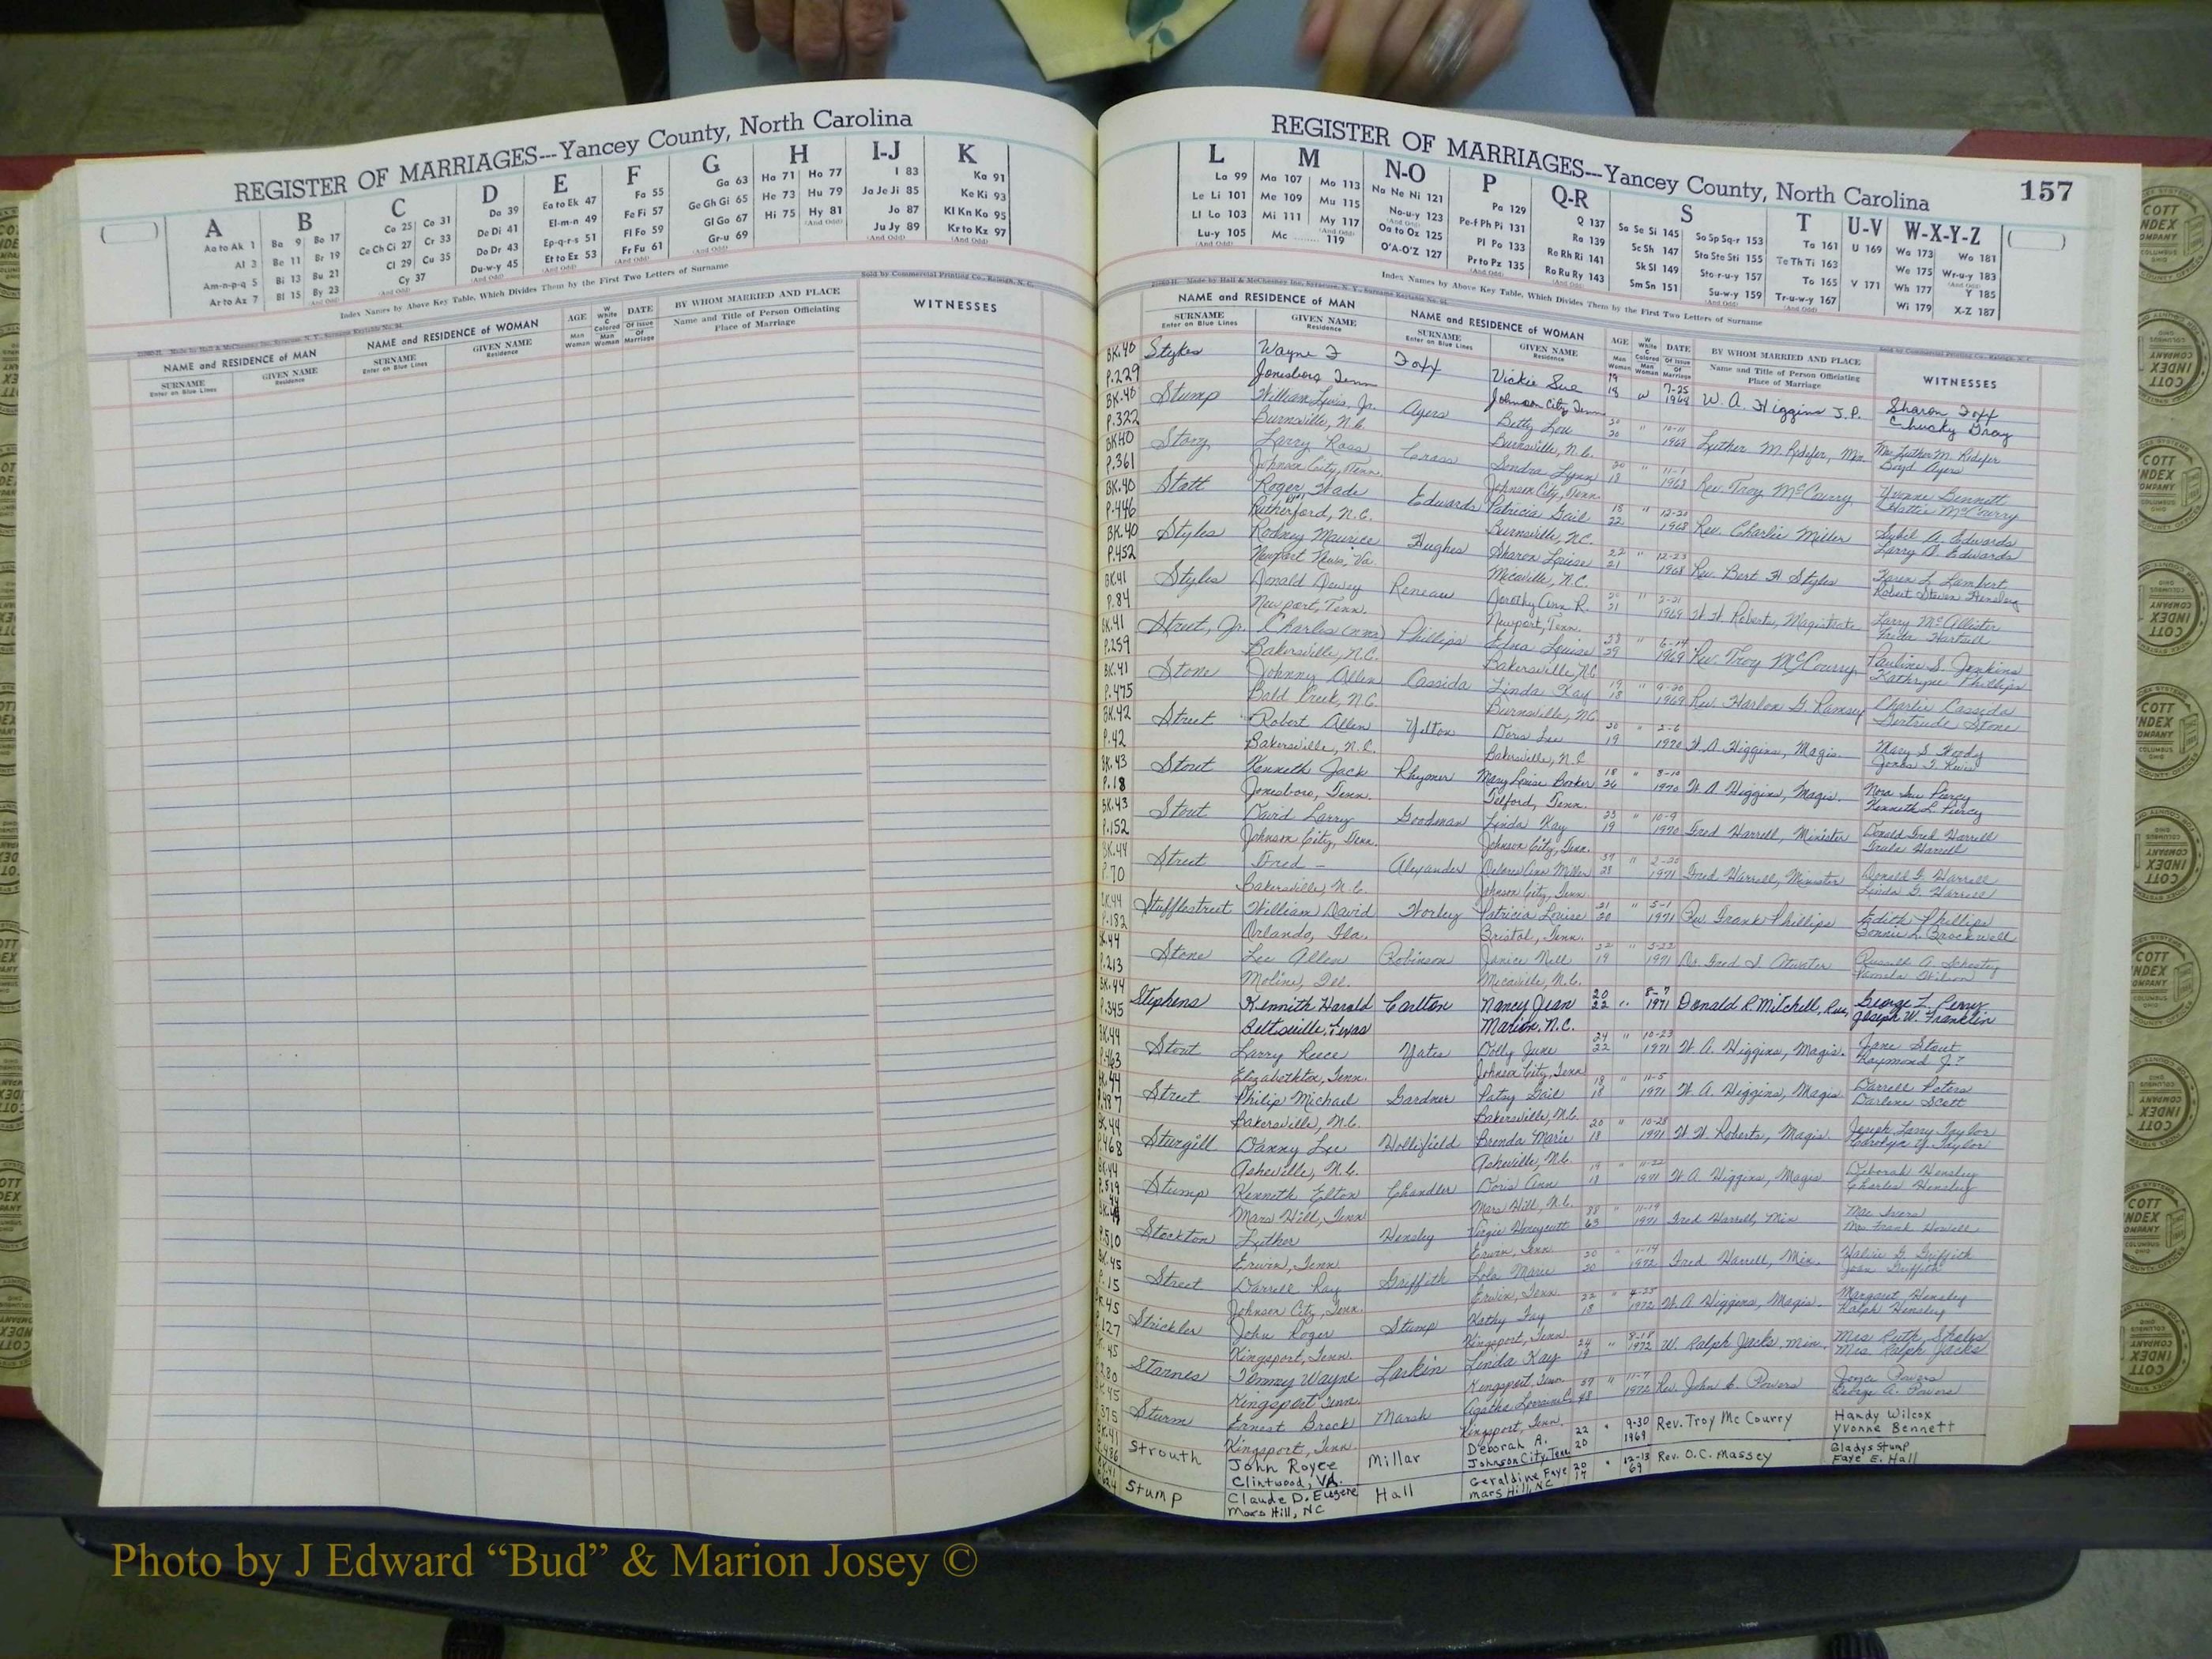 REGISTER OF MARRIAGES---Yancey County, North Carolina
A B C D E F G H I-J K
Aa to Ak 1 Ba 9 Bo 17 Ca 25 Co 31 Da 39 Ea to Ek 47 Fa 55 Ga 63 Ha 71 Ho 77 I 83 Ka 91
Al 3 Be 11 Br 19 Ce Ch Ci 27 Cr 33 De Di 41 El-m-n 49 Fe Fi 57 Ge Gh Gi 65 He 73 Hu 79 Ja Je Ji 85 Ke Ki 93
Am-n-p-q 5 Bi 13 Bu 21 Cl 29 Cu 35 Do Dr 43 Ep-q-r-s 51 Fl Fo 59 Gl Go 67 Hi 75 Hy 81 Jo 87 Kl Kn Ko 95
Ar to Az 7 Bl 15 By 23 Cy 37 Du-w-y 45 Et to Ez 53 Fr Fu 61 Gr-u 69 Ju Jy 89 Kr to Kz 97
Index Names by Above Key Table, Which Divides Them by the First Two Letters of Surname
Sold by Commercial Printing Co., Raleigh, N. C.
NAME and RESIDENCE of MAN
SURNAME
Enter on Blue Lines
GIVEN NAME
Residence
NAME and RESIDENCE of WOMAN
SURNAME
Enter on Blue Lines
GIVEN NAME
Residence
AGE
Man
Woman
W
White
C
Colored
Man
Woman
DATE
Of Issue
Of
Marriage
BY WHOM MARRIED AND PLACE
Name and Title of Person Officiating
Place of Marriage
WITNESSES
REGISTER OF MARRIAGES---Yancey County, North Carolina
157
L M N-O P Q-R S T U-V W-X-Y-Z
La 99 Ma 107 Mo 113 Na Ne Ni 121 Pa 129 Q 137 Sa Se Si 145 So Sp Sq-r 153 Ta 161 U 169 Wa 173 Wo 181
Le Li 101 Me 109 Mu 115 No-u-y 123 Pe-f Ph Pi 131 Ra 139 Sc Sh 147 Sta Ste Sti 155 Te Th Ti 163 We 175 Wr-u-y 183
Ll Lo 103 Mi 111 My 117 Oa to Oz 125 Pl Po 133 Ro Rh Ri 141 Sk Sl 149 Sto-r-u-y 157 To 165 V 171 Wh 177 Y 185
Lu-y 105 Mc 119 O'A-O'Z 127 Pr to Pz 135 Ro Ru Ry 143 Sm Sn 151 Su-w-y 159 Tr-u-w-y 167 Wi 179 X-Z 187
Index Names by Above Key Table, Which Divides Them by the First Two Letters of Surname
NAME and RESIDENCE of MAN
SURNAME
Enter on Blue Lines
GIVEN NAME
Residence
NAME and RESIDENCE of WOMAN
SURNAME
Enter on Blue Lines
GIVEN NAME
Residence
AGE
Man
Woman
W
White
C
Colored
Man
Woman
DATE
Of Issue
Of
Marriage
BY WHOM MARRIED AND PLACE
Name and Title of Person Officiating
Place of Marriage
WITNESSES
BK.40 Stykes Wayne F Foxx Vickie Sue 19 w 7-25 W. A. Higgins J.P. Sharon Foxx
P.229 Jonesboro Tenn Johnson City, Tenn 18 1968 Chucky Gray
BK.40 Stump William Lewis, Jr. Ayers Betty Lou 20 " 10-11 Luther M. Rdifer, Min. Mrs. Luther M. Rdifer
P.322 Burnsville, N.C. Burnsville, N.C. 20 1968 Boyd Ayers
BK40 Story Larry Ross Crass Sondra Lynn 20 " 11-1 Rev. Troy McCourry Yvonne Bennett
P.361 Johnson City, Tenn. Johnson City, Tenn. 18 1968 Hattie McCourry
BK.40 Stott Roger Wade Edwards Patricia Gail " 12-20 Rev. Charlie Miller Sybil A. Edwards
P.446 Rutherford, N.C. Burnsville, N.C. 22 1968 Larry D. Edwards
BK.40 Styles Rodney Maurice Hughes Sharon Louise 22 " 12-23 Rev. Bert H Styles Karen L. Lambert
P.452 Newport News, Va. Micaville, N.C. 21 1968 Robert Steven Hensley
BK.41 Styles Donald Dewey Reneau Dorothy Ann R. " W. W. Roberts, Magistrate Larry McAllister
P.84 Newport, Tenn. Newport, Tenn. 21 1969
BK.41 Street, Jr. Charles (nmn) Phillips Edna Louise " 6-14 Rev. Troy McCourry Pauline S. Jenkins
P.259 Bakersville, N.C. Bakersville, N.C. 29 1969 Kathryne Phillips
BK.41 Stone Johnny Allen Cassida Linda Kay 19 " 9-20 Rev. Harlon G. Ramsey Charlie Cassida
P.475 Bald Creek, N.C. Burnsville, N.C. 18 1969 Gertrude Stone
BK.42 Street Robert Allen Yelton Doris Lee 20 " 2-6 W. A. Higgins, Magis. Mary S. Woody
P.42 Bakersville, N.C. Bakersville, N.C. 19 1970
BK.43 Stout Kenneth Jack Rhymer Mary Louise Booker 18 " 8-10 W. A Higgins, Magis.
P.18 Jonesboro, Tenn. Telford, Tenn. 26 1970 Kenneth L. Piercy
BK.43 Stout David Larry Goodman Linda Kay 23 " 10-9 Fred Harrell, Minister Donald Fred Harrell
P.152 Johnson City, Tenn. Johnson City, Tenn. 19 1970
BK.44 Street Fred - Alexander Delores Ann Miller 37 " Fred Harrell, Minister Donald F. Harrell
P.70 Bakersville, N.C. Johnson City, Tenn. 28 1971 Linda G. Harrell
BK.44 Stufflestreet William David Worley Patricia Louise 21 " 5-1 Rev. Frank Phillips Edith Phillips
P.182 Orlando, Fla. Bristol, Tenn. 20 1971 Bonnie L. Brockwell
BK.44 Stone Lee Allen Robinson Janice Nell " 5-22 Dr. Fred I Atwater Russell A.
P.213 Moline, Ill. Micaville, N.C. 19 1971 Pamela Wilson
BK.44 Stephens Kennith Harold Carlton Nancy Jean 20 " 8-7 Donald R. Mitchell, Rev. George L. Perry
P.345 Beltsville, Texas Marion, N.C. 22 1971 Joseph W. Franklin
BK.44 Stout Larry Reece Yates Dolly June 24 " 10-23 W. A. Higgins, Magis. Jane Stout
P.463 Elizabethton, Tenn. Johnson City, Tenn 22 1971
BK.44 Street Philip Michael Gardner Patsy Gail 18 " 11-5 W. A. Higgins, Magis Darrell Peters
P.487 Bakersville, N.C. Bakersville, N.C. 18 1971 Darlene Scott
BK.44 Sturgill Danny Lee Hollifield Brenda Marie 20 " 10-28 W. W. Roberts, Magis. Joseph Larry Taylor
P.468 Asheville, N.C. Asheville, N.C. 18 1971 Carolyn Y. Taylor
BK.44 Stump Kenneth Elton Chandler Doris Ann 19 " 11-22 W. A. Higgins, Magis Deborah Hensley
P.519 Mars Hill, Tenn Mars Hill, N.C. 18 1971 Charles Hensley
BK.44 Stockton Luther Hensley Virgie Honeycutt " 11-19 Fred Harrell, Min
P.510 Erwin, Tenn Erwin, Tenn. 63 1971 Mrs. Frank Howell
BK.45 Street Darrell Ray Griffith Lola Marie 20 " 1-14 Fred Harrell, Min.
P.15 Johnson City, Tenn. Erwin, Tenn. 20 1972 Jean Griffith
BK.45 Strickler John Roger Stump Kathy Fay 22 " W. A Higgins, Magis. Margaret Hensley
P.127 Kingsport, Tenn. Kingsport, Tenn. 18 1972 Ralph Hensley
BK.45 Starnes Tommy Wayne Larkin Linda Kay 24 " 8-18 W. Ralph Jacks, Min. Mrs. Ruth
280 Kingsport Tenn. Kingsport, Tenn 19 1972 Mrs. Ralph Jacks
BK.45 Sturm Ernest Brock Marsh " 11-7 Rev. John C. Powers Joyce Powers
375 Kingsport, Tenn Kingsport, Tenn. 48 1972 George A. Powers
BK.41 Strouth John Royce Millar Deborah A. 22 " 9-30 Rev. Troy Mc Courry Handy Wilcox
P.486 Clintwood, VA. Johnson City, Tenn 20 1969 Yvonne Bennett
BK.41 Stump Claude D. Eugene Hall Geraldine Faye 20 " 12-13 Rev. O.C. Massey Gladys Stump
Mars Hill, NC Mars Hill, NC 17 69 Faye E. Hall
Photo by J Edward “Bud” & Marion Josey ©